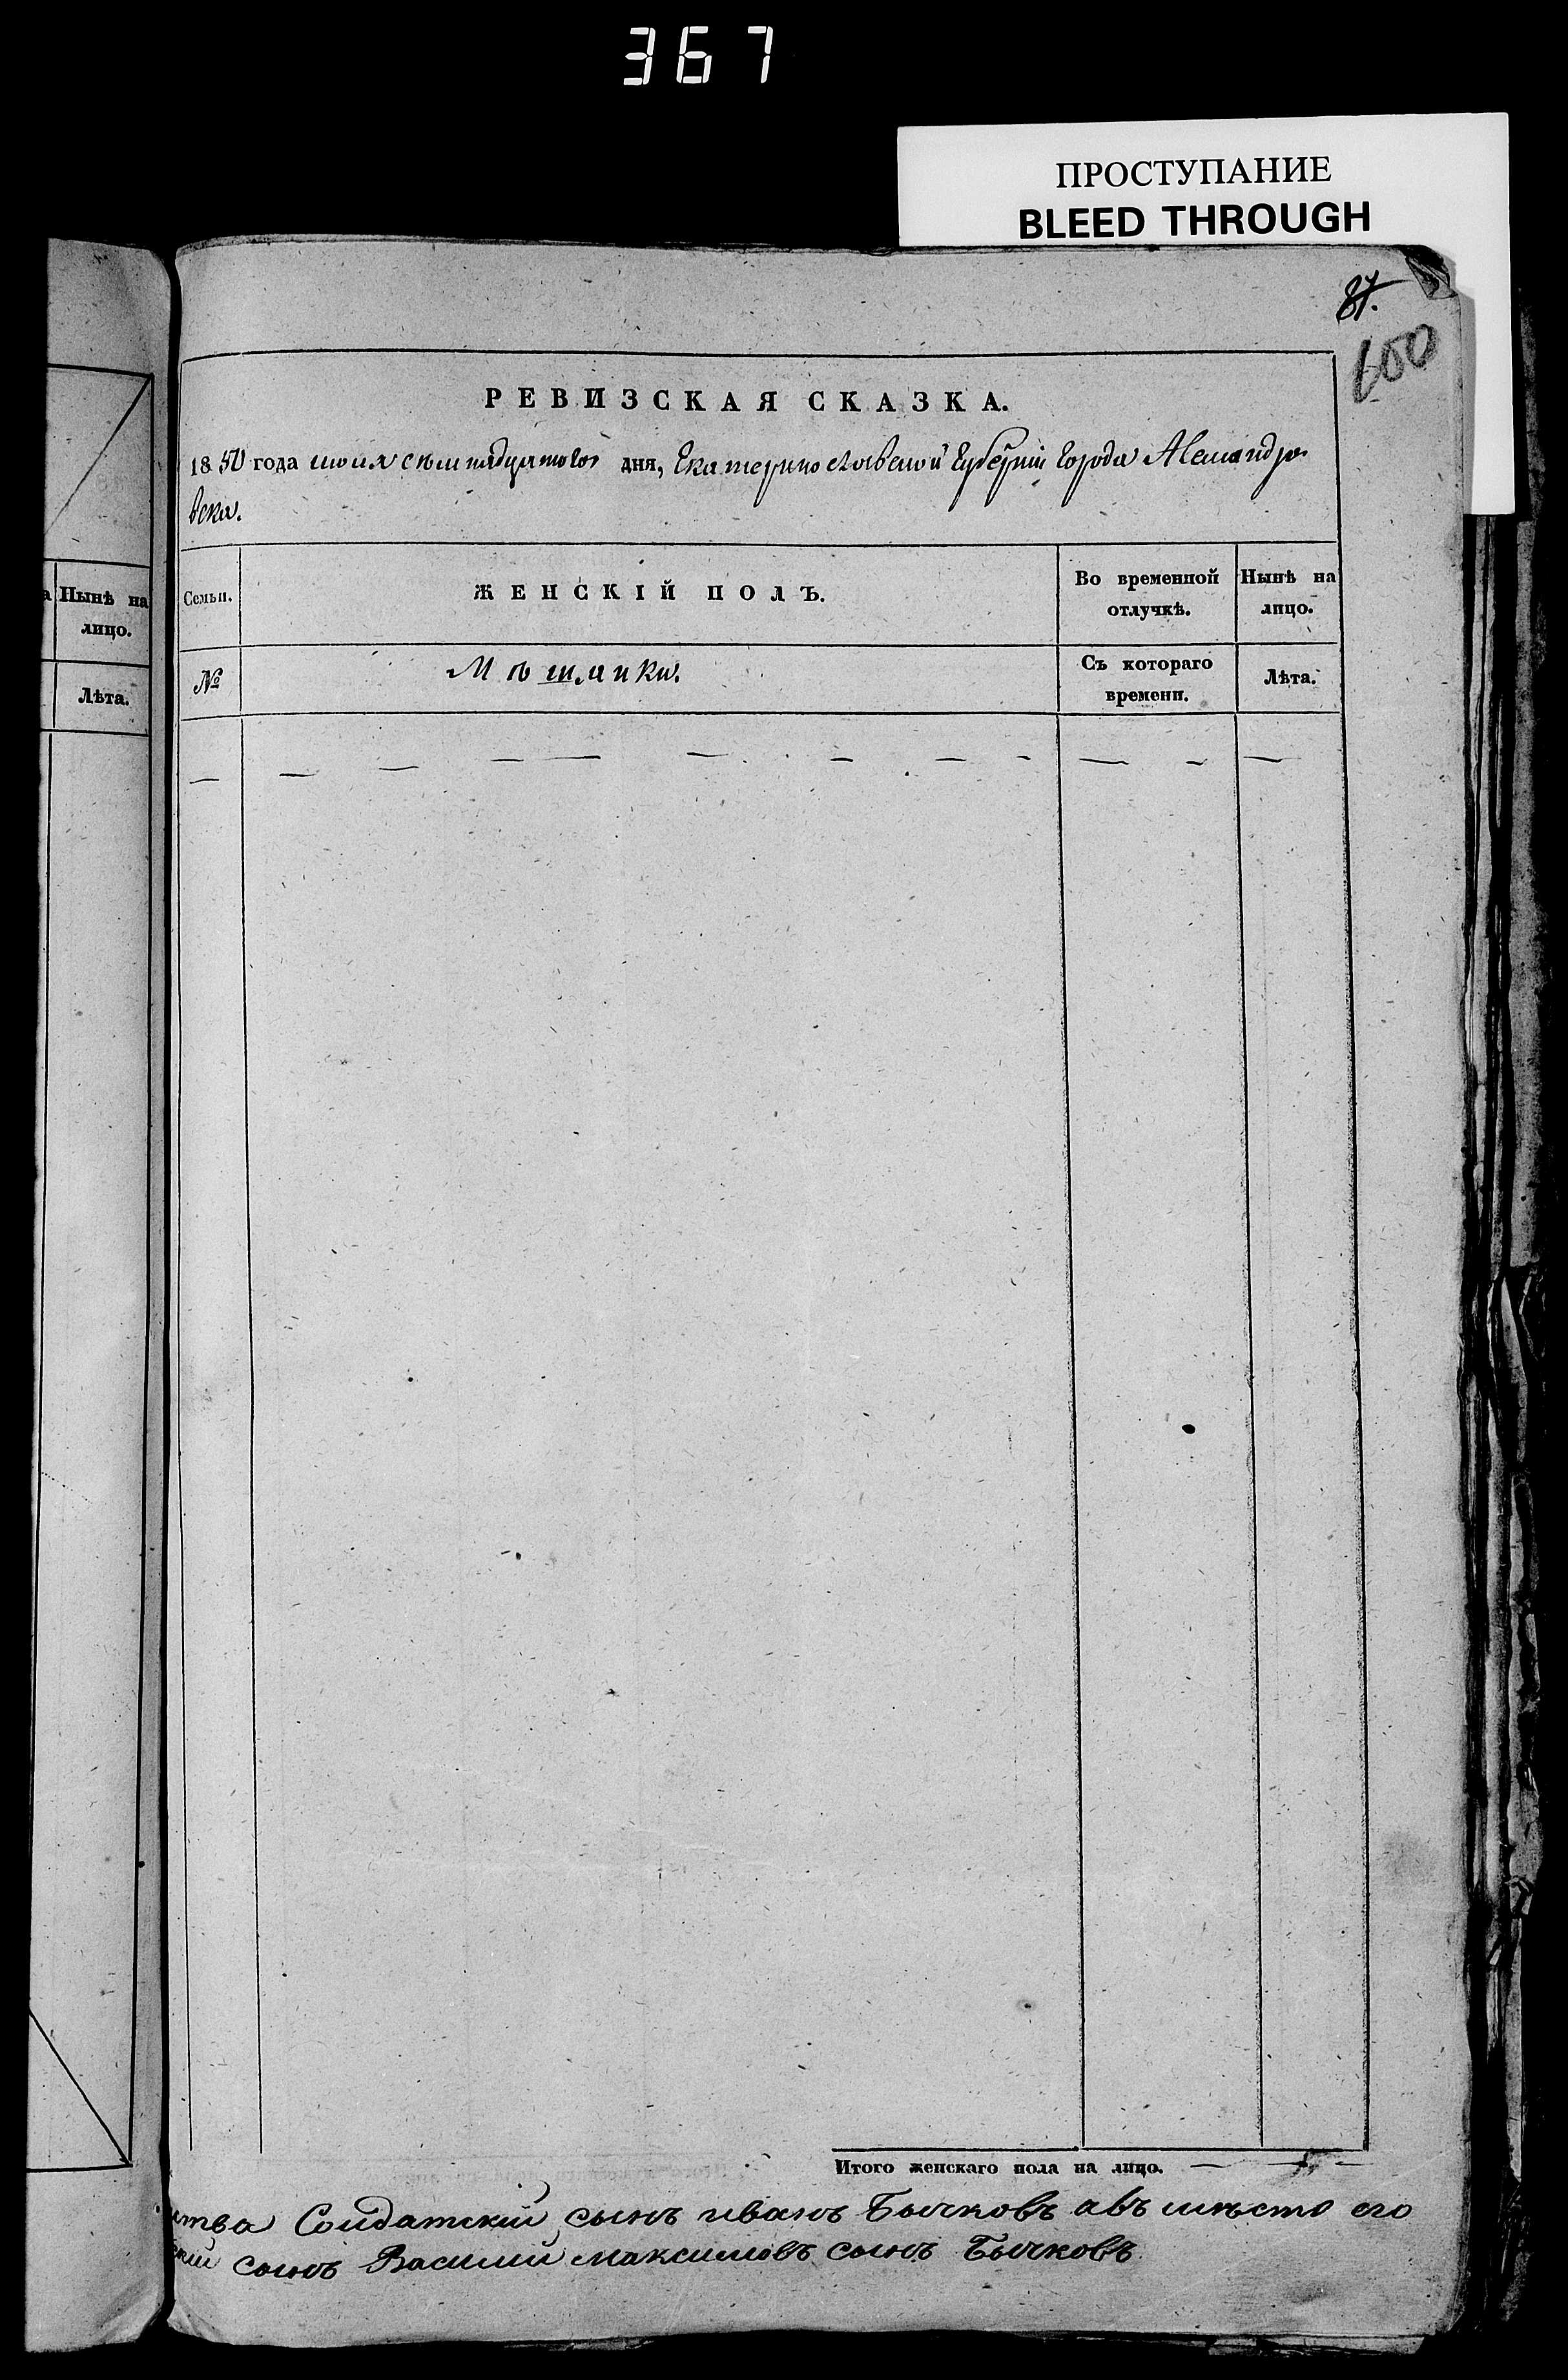 367
ПРОСТУПАНИЕ
BLEED THROUGH
87.
600
РЕВИЗСКАЯ СКАЗКА.
1850 года июля семнадцатого дня, Екатеринославской Губерніи Города Александро-
вска.
Нынѣ на
лицо.
Лѣта.
Семьи.
ЖЕНСКІЙ ПОЛЪ.
Во временной
отлучкѣ.
Нынѣ на
лицо.
№
Мѣщанки.
Съ котораго
времени.
Лѣта.
Итого женскаго пола на лицо.
ства Солдатскій сынъ иванъ Бычковъ авъ мѣсто его
скій сынъ Василий Максимовъ сынъ Бычковъ